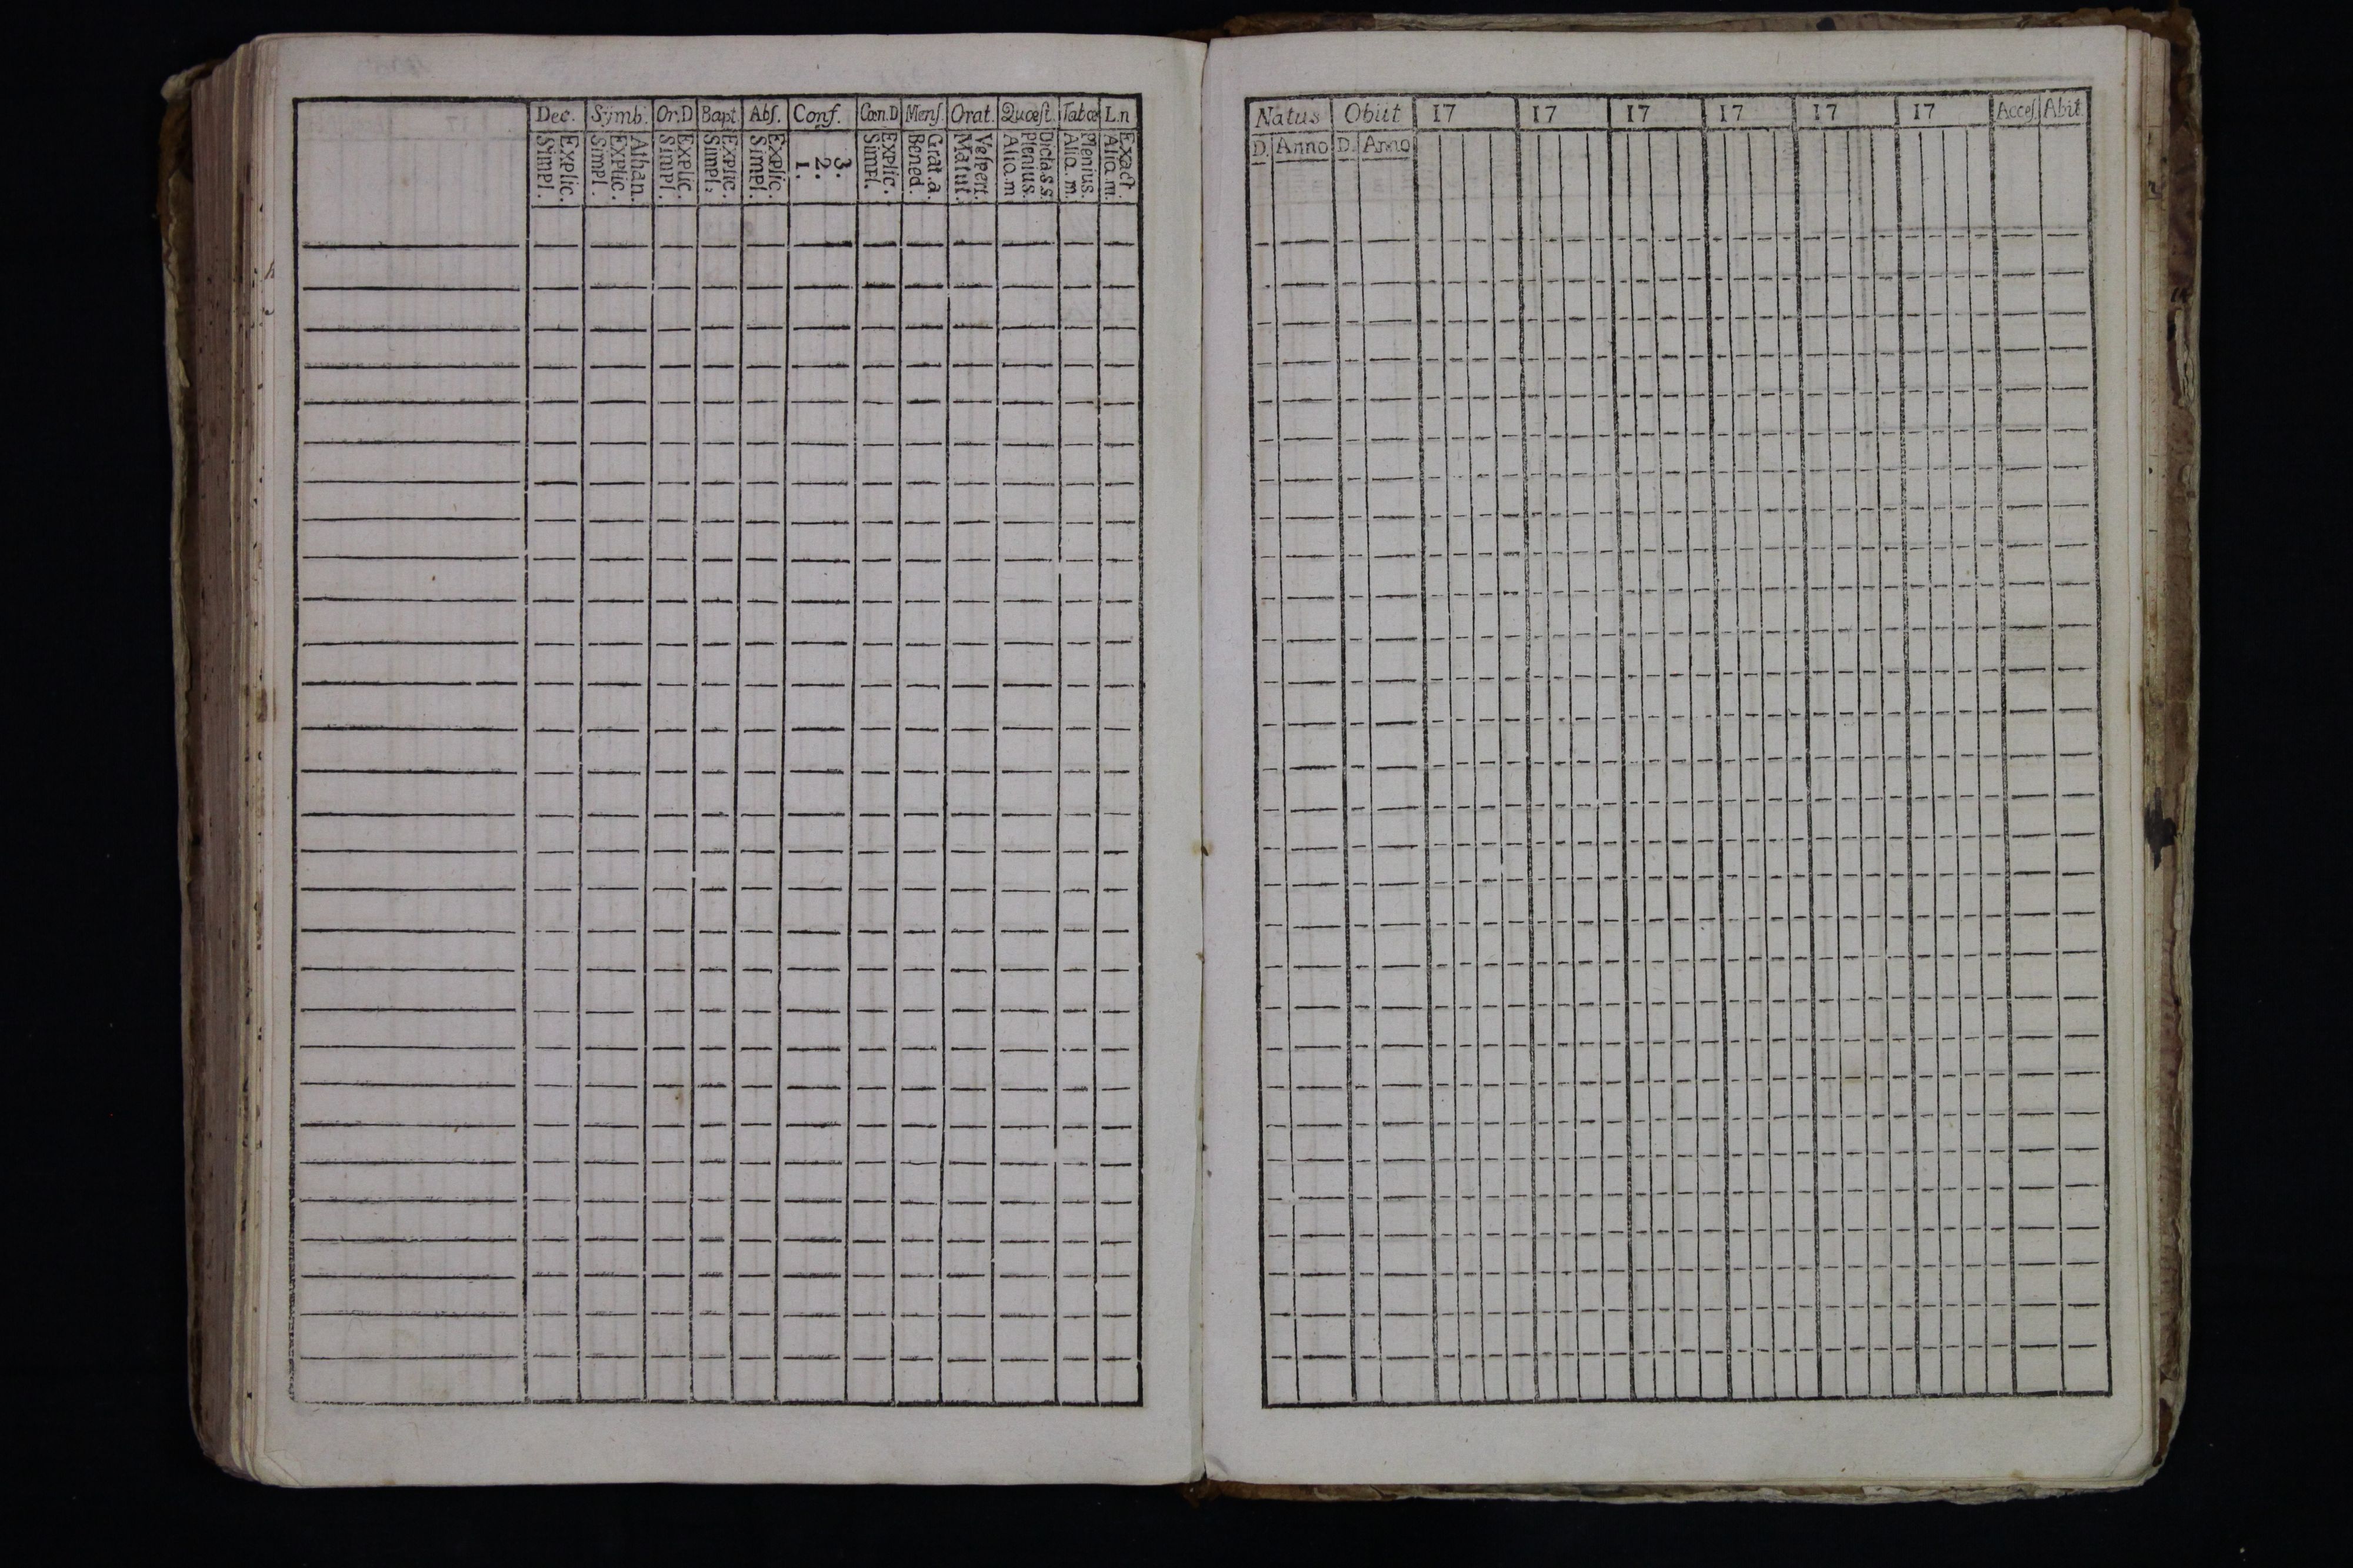 Dec. Symb. Or.D Bapt. Abſ. Conf. Cœn.D Menſ. Orat. Quœſt. Tabœ L.n
Explic.
Simpl.
Athan.
Explic.
Simpl.
Explic.
Simpl.
Explic.
Simpl.
Explic.
Simpl.
3.
2.
1.
Explic.
Simpl.
Grat.a.
Bened.
Veſpert.
Matut.
Dicta.s.s.
Plenius.
Aliq.m.
Plenius.
Aliq.m.
Exact.
Aliq.m.
Natus Obiit 17 17 17 17 17 17 Acceſ. Abit.
D. Anno D. Anno